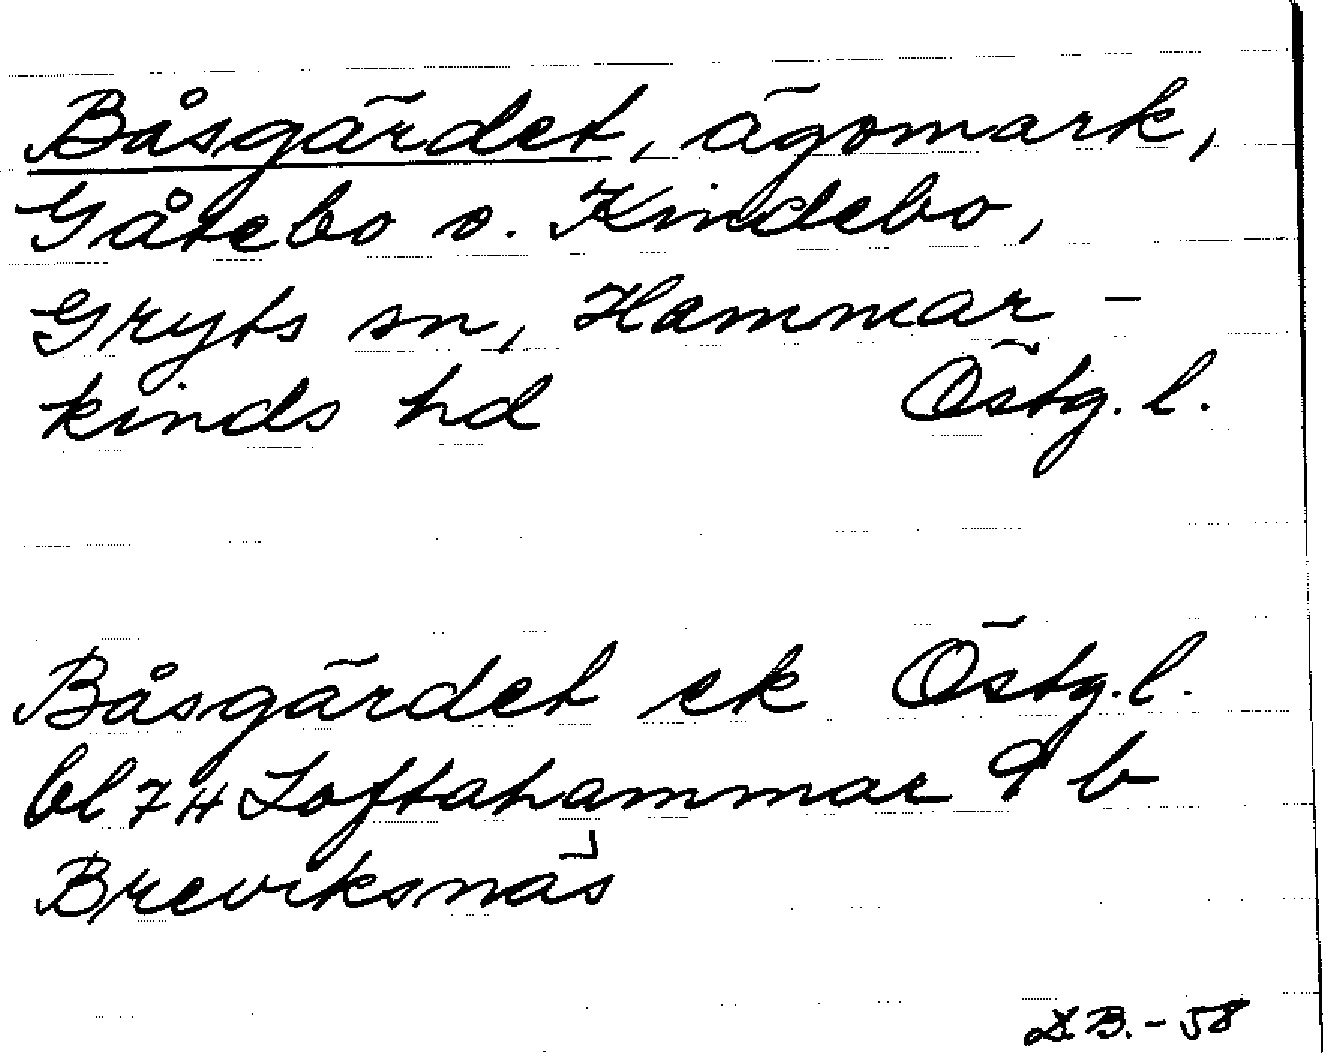 Båsgärdet, ägomark,
Gåtebo o. Kindebo,
Gryts sn, Hammar-
kinds hd Östg. l.
Båsgärdet ek Östg. l.
bl 7H Loftahammar 9 b
Breviksnäs
D.B. - 58